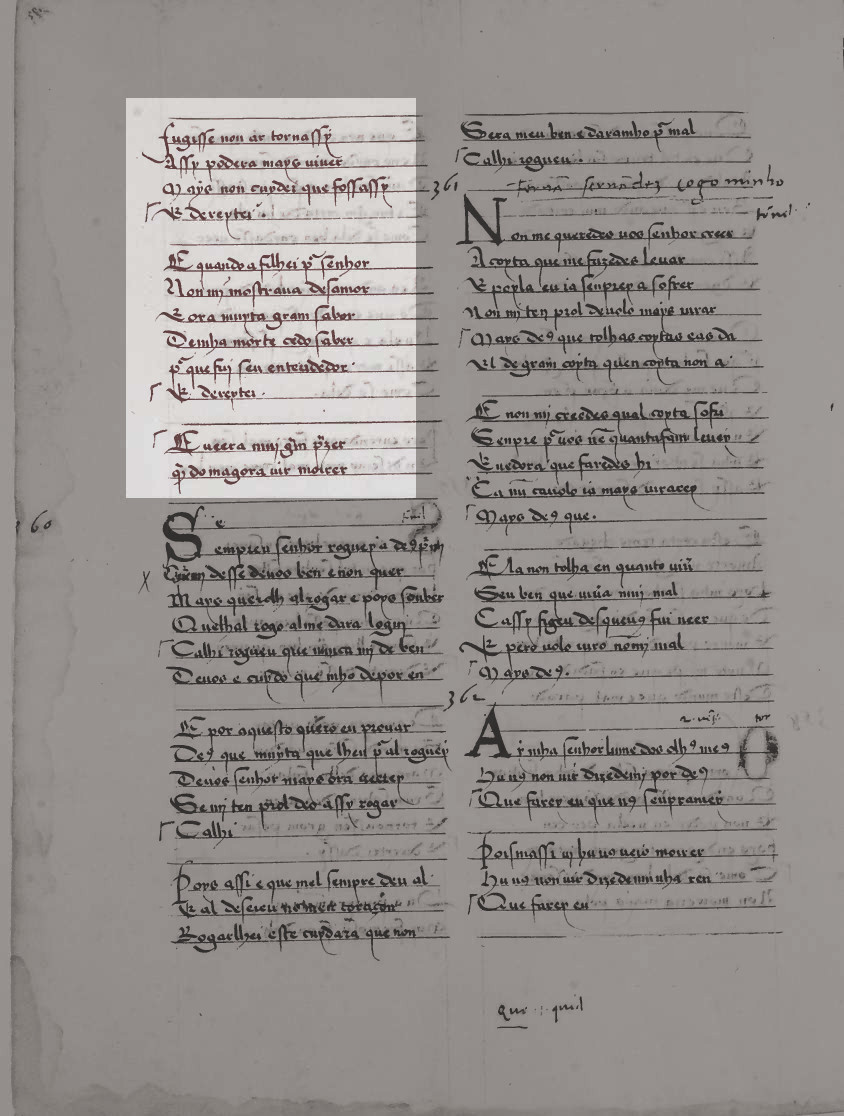 fugisse non ar tornassy
Assy podera mays viver
Mays non cuydei que fossassy
E dereytei.
E quando a filhei p̃ senhor
Non mj̃ mostraua desamor
E ora muyta gram sabor
De mha morte cedo saber
p̃ que fuj seu entendedor
E dereytei.
E uerra mui grã p̃zer
q̃ do magora uir morrer
360
Se
empreu senhor roguey a de9
desse de uos ben e non quer
Mays querolh al rogar e poys souber
Quethal rogo alme dara logui
Calhi rogueu que nunca mj̃ de ben
De uos e cuydo que mho de por en
E por aquesto quero eu prouar
De9 que muyta que lheu p̃ al roguey
De uos senhor mays ora
Se mj ten prol deo assy rogar
Calhi
Poys assi e que mel sempre deu al
E al deseieu
Rogarlhei este cuydara que non
Sera meu ben e daramho p̃ mal
Calhi rogueu.
361
fernãdez cogominho
Non me queredes uos senhor creer
A coyta que me fazedes leuar
E poyla eu ia senprey a sofrer
Non mj ten prol deuolo mays iurar
Mays de9 que tolhas coytas e as da
Ul de gram coyta quen coyta non a
E non mj creedes qual coyta sofri
Senpre p̃ uos nẽ quantafam leuey
E uedora que faredes hi
Ca nũ cauolo ia mays iurarey
Mays de9 que.
Ela non tolha en quanto uiu̇
Seu ben que uiua muj mal
Cassy figeu desqueu9 fui ueer
E pero uolo iuro nõmj ual
Mays de9.
362
Ay mha senhor lume dos olh9 me9
Hu u9 non uir dizedemj por de9
Que farey eu que u9 senpramey
Pois massi uj hu uo ueio morrer
Hu u9 non uir dizedemminha ren
Que farey eu